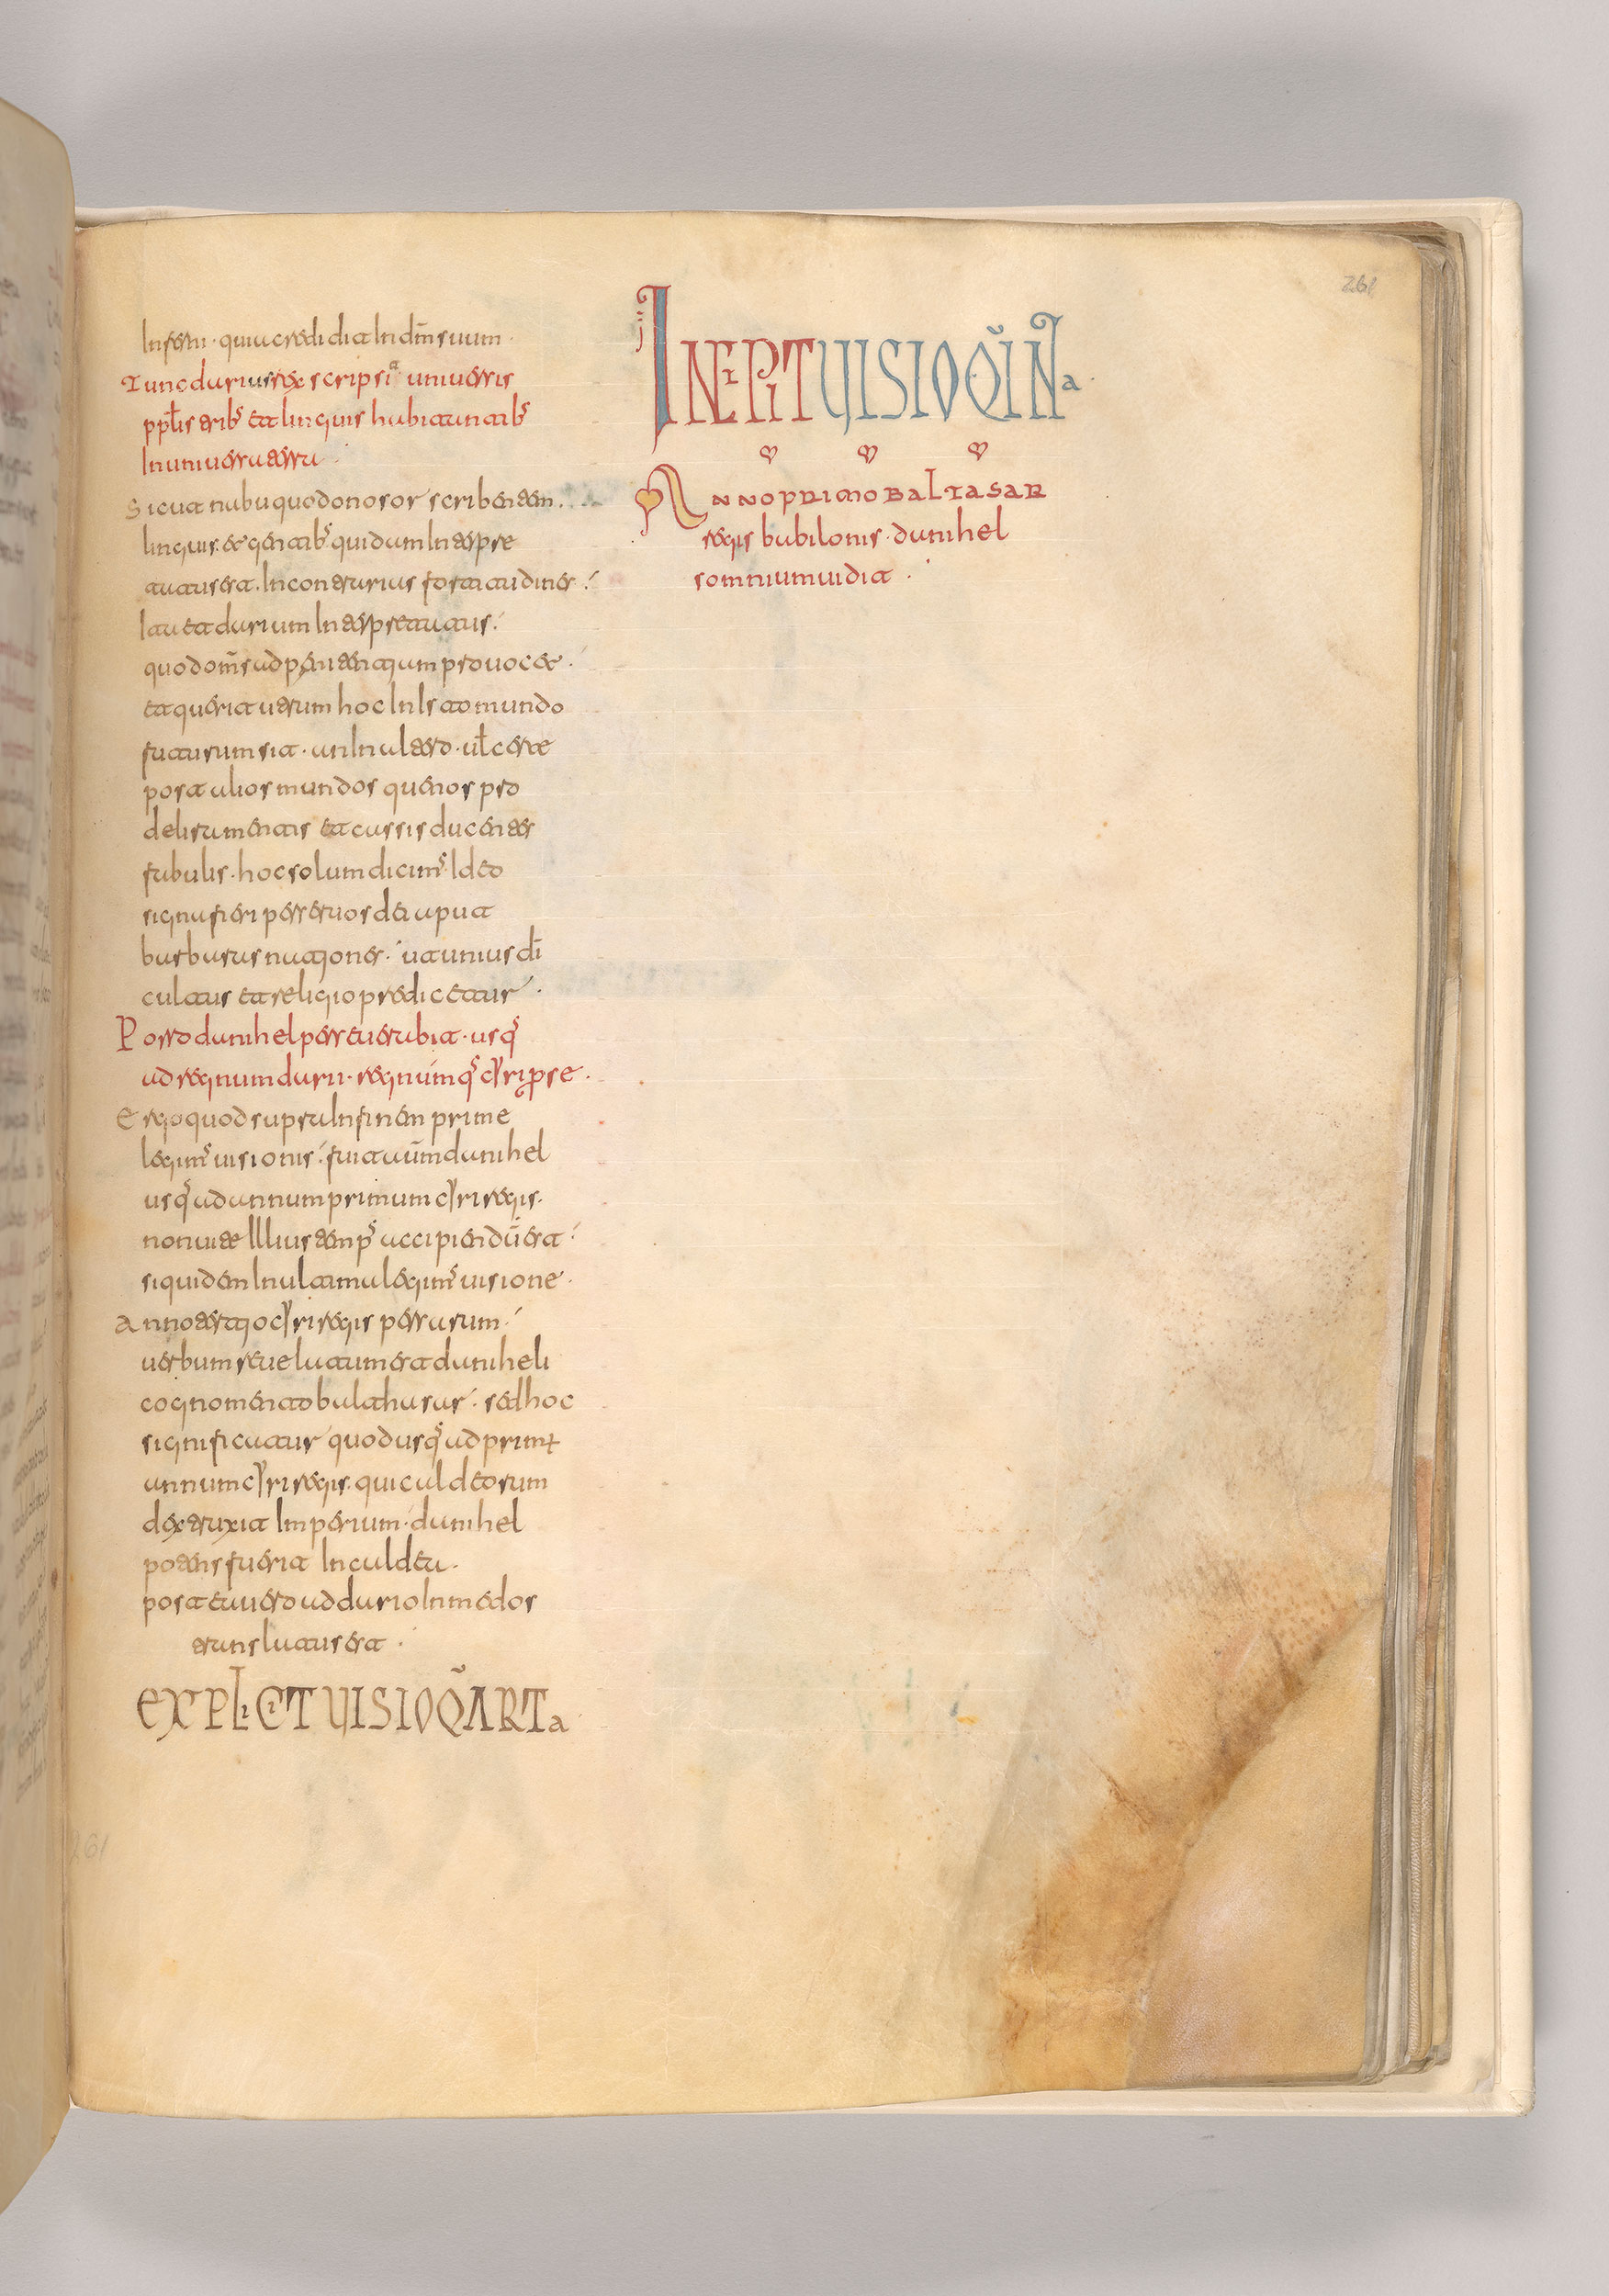 quia credidit In dn̄m suum
Tunc darius rex scripsit uniuersis
pplīs tribˢ et linguis habitantibˢ
In uniuersa terra
Sicut nabuquodonosor scribentem
linguis. et gentibˢ quidam Interpre
tatus est. In contrarias fortitudines.
Ita et darium Interpretatus.
quod om̄s ad penitentiam prouocet.
et querit utrum hoc In Isto mundo
futurum sit. an In altero. ul̄ certe
post alios mundos que nos pro
deliramentis et cassis ducentes
fabulis. hoc solum dicimˢ. Ideo
signa fieri per seruos dei aput
barbaras nationes. ut unius dī
cultus et religio predicetur.
Porro danihel perseuerabit. usqˢ
ad regnum darii. regnumqˢ cyri perse.
Ergo quod supra In finem prime
legimˢ uisionis. fuit aūm danihel
usqˢ ad annum primum cyri regis.
non uite Illius tempˢ accipiendū est.
siquidem In ultima legimˢ uisione.
Anno tertio cyri regis persarum.
uerbum reuelatum est daniheli
cognomento balthasar. sed hoc
significatur quod usqˢ ad primū
annum cyri regis. qui caldeorum
dextruxit Imperium. danihel
potens fuerit In caldea.
postea uero ad dario In medos
translatus est.
EXPLICIT UISIO Q̃ARTa
INCIPIT UISIO Q̃INTa.
Anno primo baltasar
regis babilonis. danihel
somnium uidit.
261
261